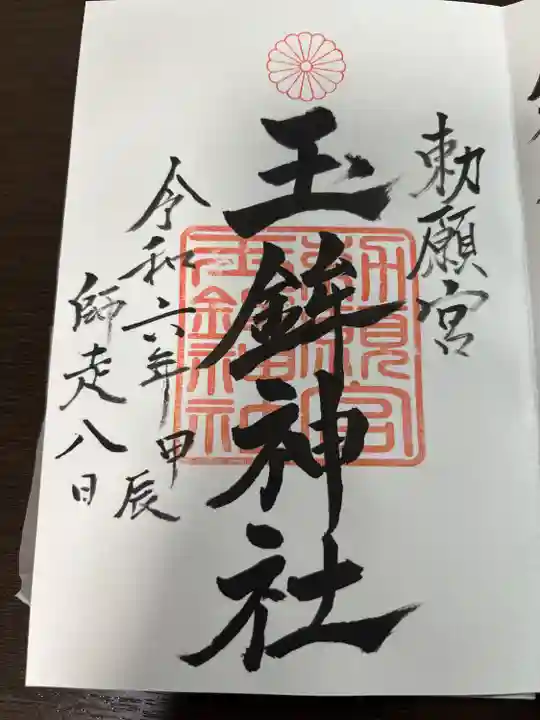 勅願宮
玉鉾神社
令和六年甲辰
師走八日